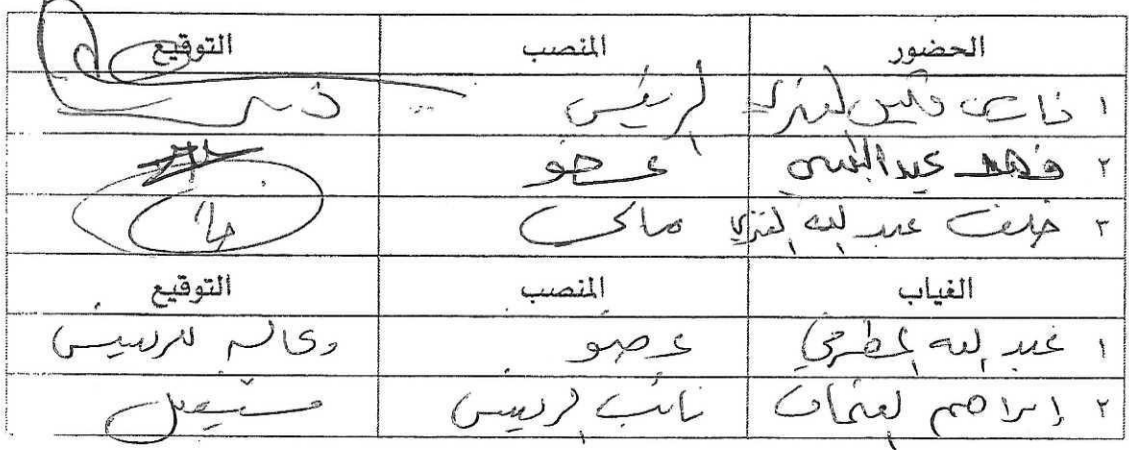 الحضور المنصب التوقيع
١ العنزي الرئيس
٢ فهد عضو
٣ خلف عبد الله العنزي مالي
الغياب المنصب التوقيع
١ عبد الله المطرفي عضو وكالة للرئيس
٢ إبراهيم العثمان نائب الرئيس مستقيل